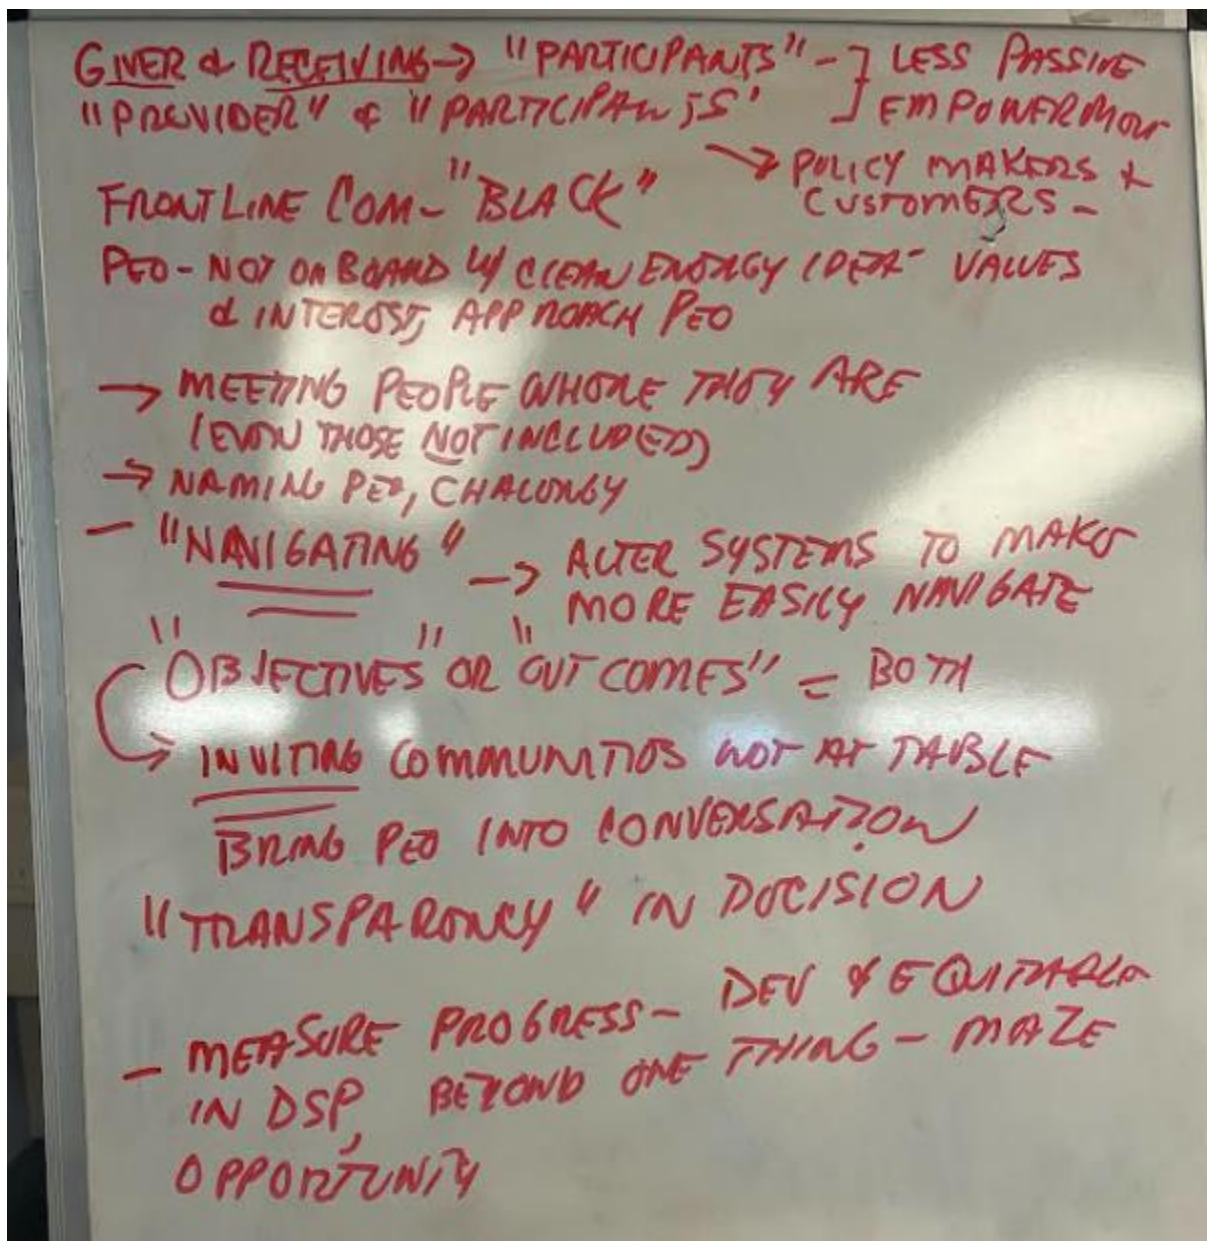 GIVER & RECEIVING → "PARTICIPANTS" - ] LESS PASSIVE
"PROVIDER" & "PARTICIPANTS' ] EMPOWERMENT
→ POLICY MAKERS &
CUSTOMERS -
FRONTLINE COM - "BLACK"
PEO - NOT ON BOARD W/ CLEAN ENERGY IDEA - VALUES
& INTEREST, APPROACH PEO
→ MEETING PEOPLE WHERE THEY ARE
(EVEN THOSE NOT INCLUDED)
→ NAMING PEO, CHALENGY
- "NAVIGATING" → ALTER SYSTEMS TO MAKE
MORE EASILY NAVIGATE
"OBJECTIVES" OR "OUTCOMES" = BOTH
→ INVITING COMMUNITIES NOT AT TABLE
BRING PEO INTO CONVERSATION
"TRANSPARENCY" IN DECISION
- MEASURE PROGRESS - DEV & EQUITABLE
IN DSP, BEYOND ONE THING - MAZE
OPPORTUNITY